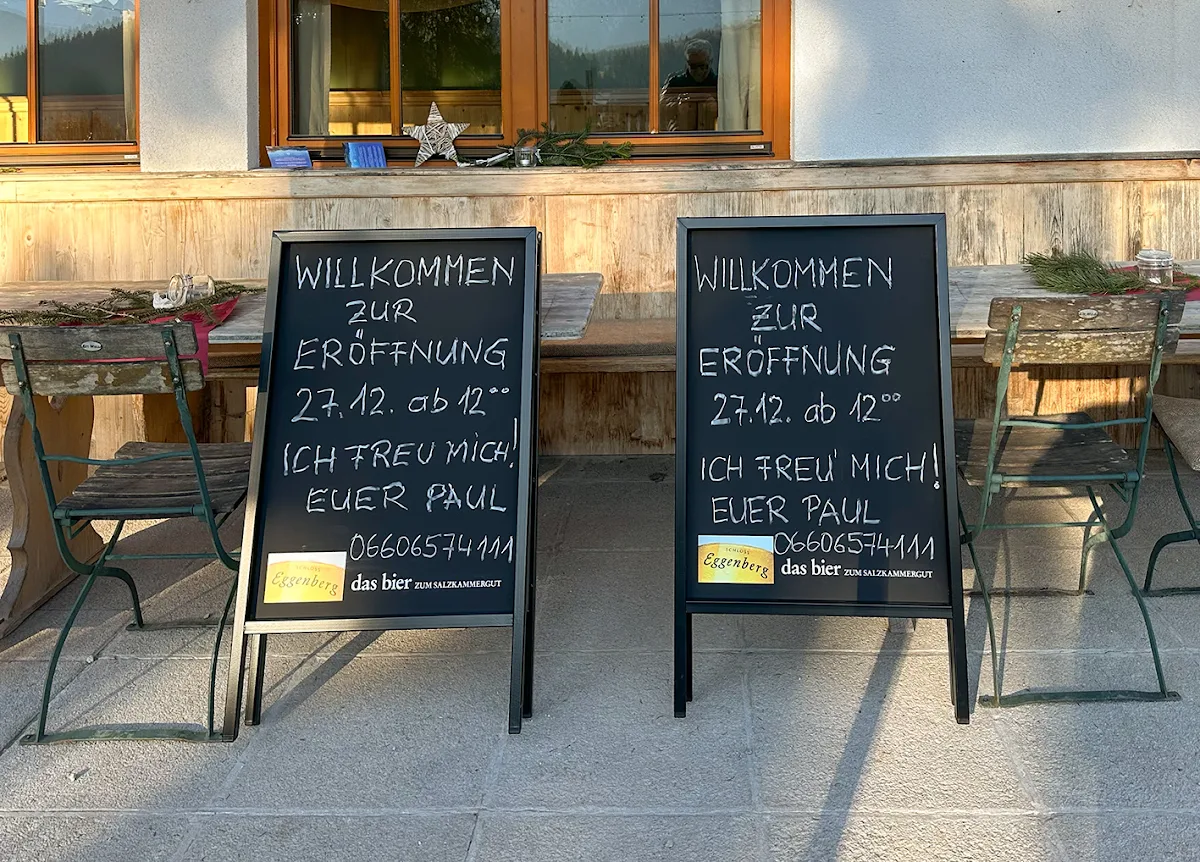 WILLKOMMEN
ZUR
ERÖFFNUNG
27.12. ab 12°°
ICH FREU MICH!
EUER PAUL
06606574111
SCHLOSS
Eggenberg
das bier ZUM SALZKAMMERGUT
WILLKOMMEN
ZUR
ERÖFFNUNG
27.12. ab 12°°
ICH FREU' MICH!
EUER PAUL
06606574111
SCHLOSS
Eggenberg
das bier ZUM SALZKAMMERGUT